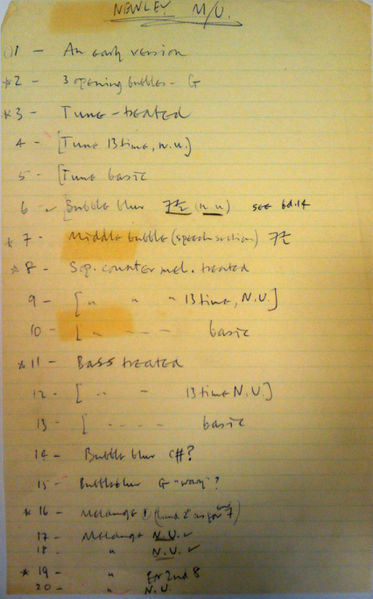 NEWLEY M/U.
1 - An early version
*2 - 3 opening bubbles - G
*3 - Tune - treated
4 - [Tune 13 time, n.u.]
5 - [Tune basic
6 - ✓ [Bubble blur (n.u) see bd.14
*7 - Middle bubble (speech section)
*8 - Sop. counter mel. treated
9 - [ " " " 13 time, N.U.]
10 - [ " - - - basic
*11 - Bass treated
12 - [ " - 13 time N.U.]
13 - [ - - - - basic
14 - Bubble blur C#?
15 - Bubble blur G "wrong"?
*16 - Melange
17 - Melange N.U. ✓
18 - " N.U. ✓
*19 - " for 2nd 8
20 - " N.U.